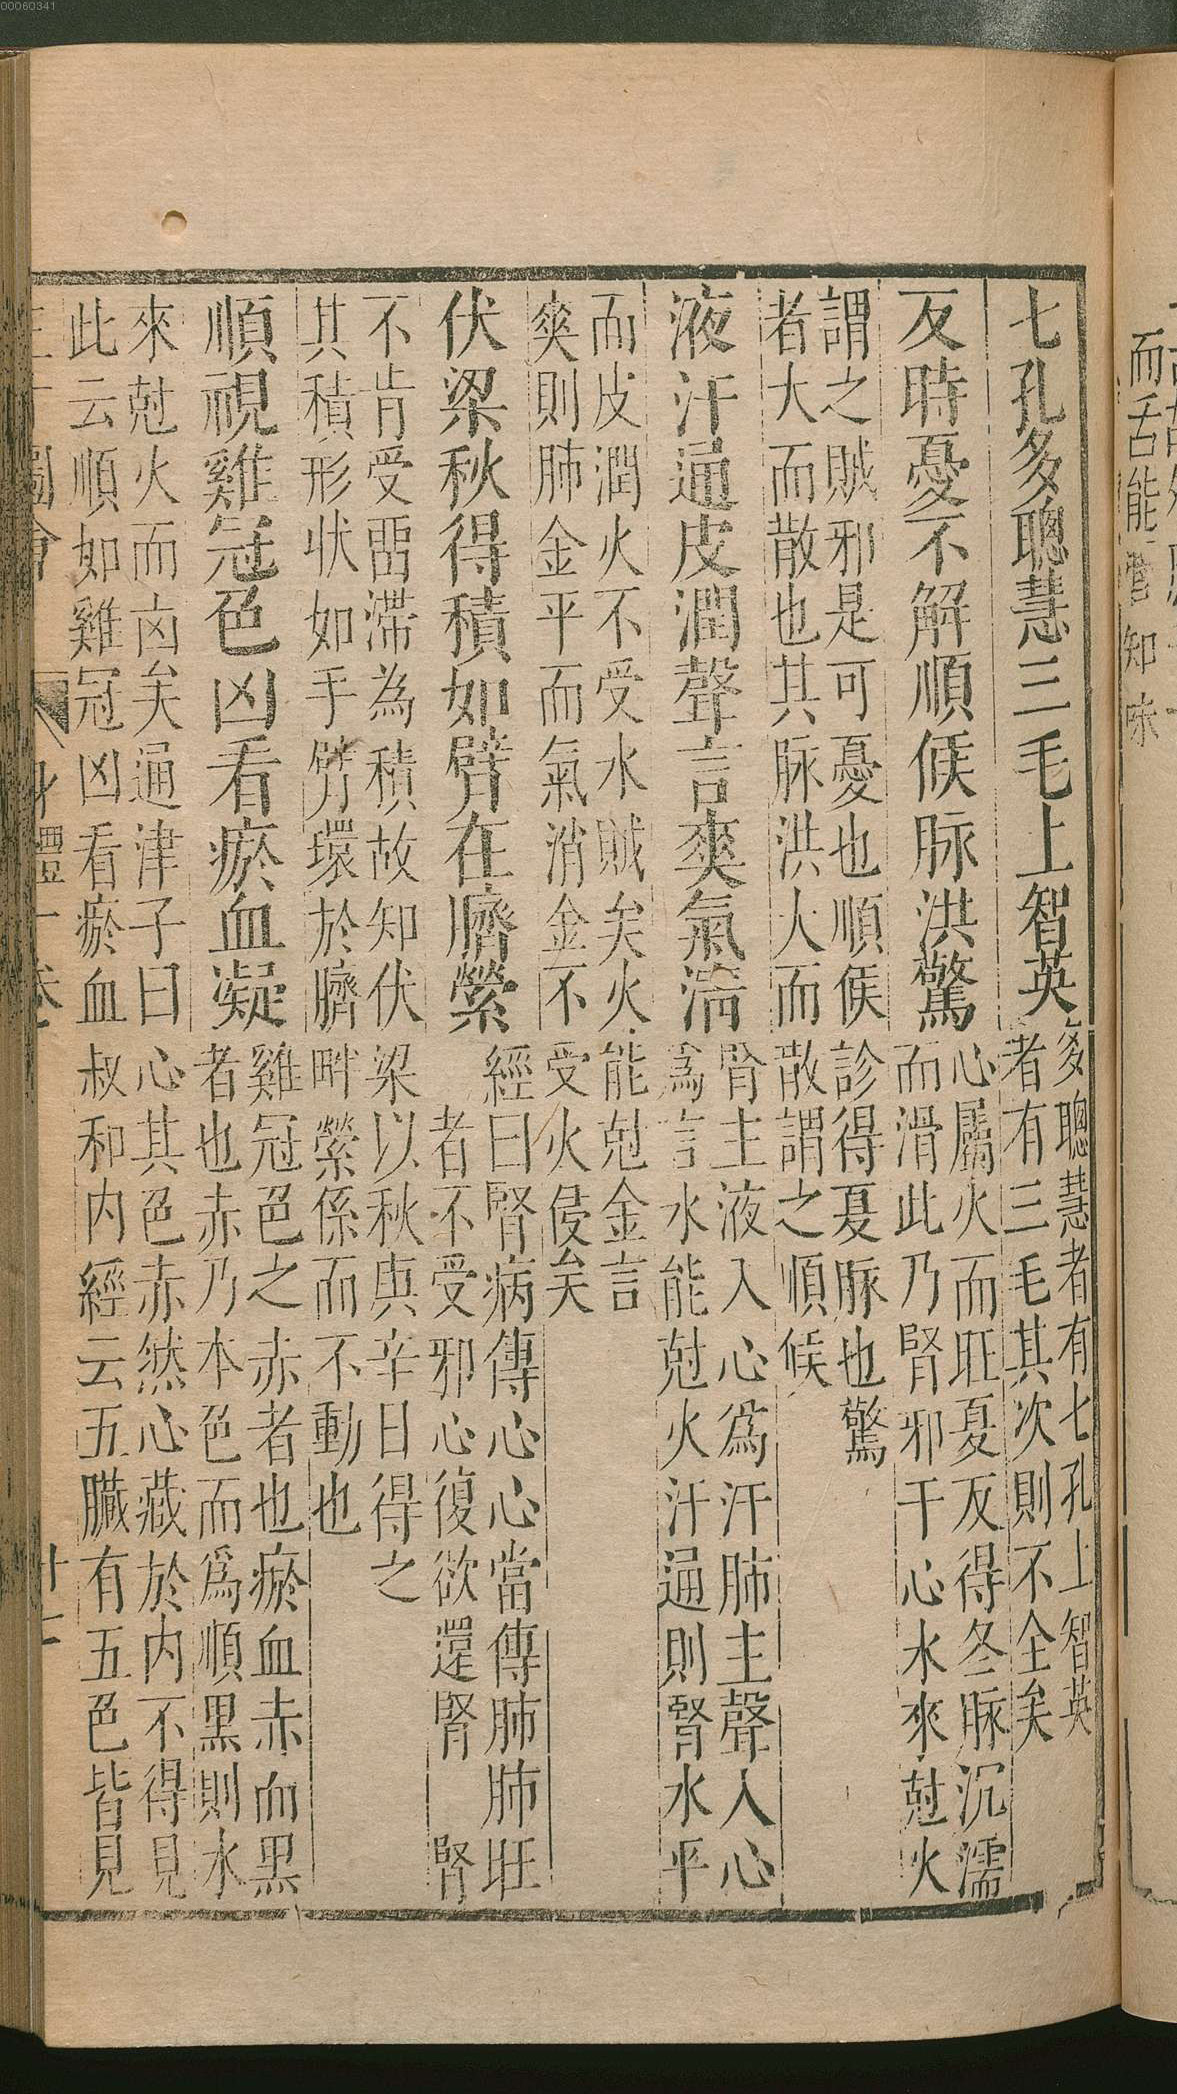 00060341
而舌能
知味
七孔多聰慧三毛上智英
多聰慧者有七孔上智英
者有三毛其次則不全矣
反時憂不解順候脉洪驚
心屬火而旺夏反得冬脉沉濡
而滑此乃腎邪干心水來尅火
謂之賊邪是可憂也順候診得夏脉也驚
者大而散也其脉洪大而散謂之順候
液汗通皮潤聲言爽氣清
腎主液入心爲汗肺主聲入心
爲言水能尅火汗通則腎水平
而皮潤火不受水賊矣火能尅金言
爽則肺金平而氣消金不受火侵矣
伏梁秋得積如臂在臍縈
經曰腎病傳心心當傳肺肺旺
者不受邪心復欲還腎 腎
不肯受畱滯為積故知伏梁以秋庚辛日得之
其積形状如手臂環於臍畔縈係而不動也
順視雞冠色凶看瘀血凝
雞冠色之赤者也瘀血赤血黑
者也赤乃本色而爲順黑則水
來尅火而凶矣通津子曰心其色赤然心藏於内不得見
此云順如雞冠凶看瘀血叔和内經云五臟有五色皆見
三才圖會 身體一卷 十七